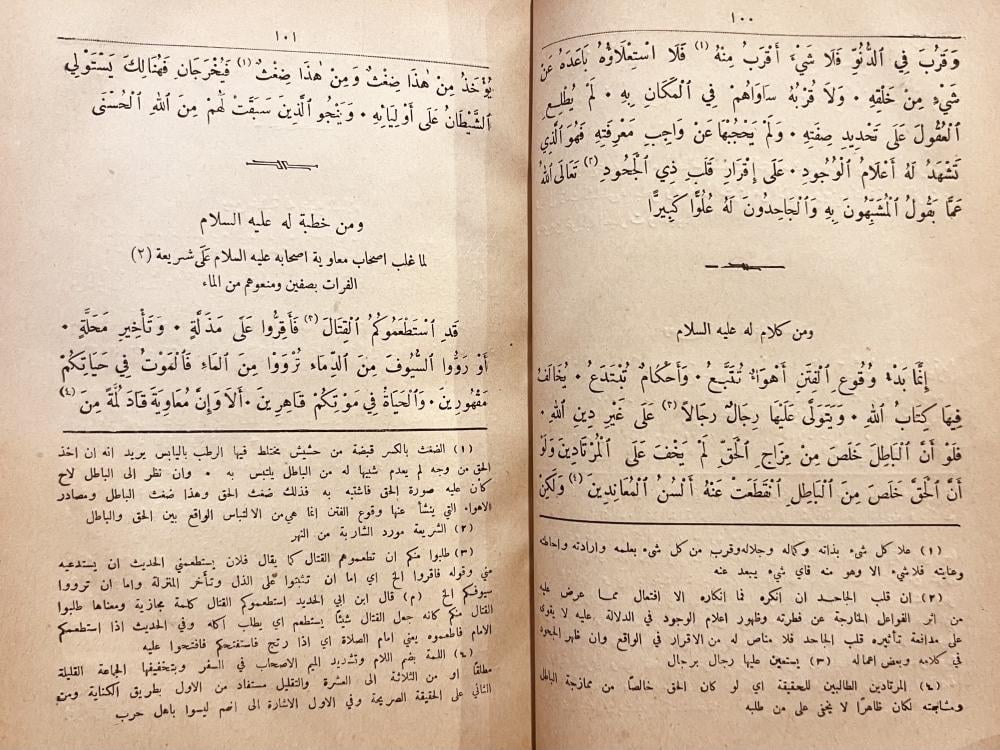 ١٠٠
وَقَرُبَ فِي ٱلدُّنُوِّ فَلَا شَيْءَ أَقْرَبُ مِنْهُ (١) فَلَا ٱسْتِعْلَاؤُهُ بَاعَدَهُ عَنْ
شَيْءٍ مِنْ خَلْقِهِ ۰ وَلَا قُرْبُهُ سَاوَاهُمْ فِي ٱلْمَكَانِ بِهِ ۰ لَمْ يُطْلِعِ
ٱلْعُقُولَ عَلَى تَحْدِيدِ صِفَتِهِ ۰ وَلَمْ يَحْجُبْهَا عَنْ وَاجِبِ مَعْرِفَتِهِ فَهُوَ ٱلَّذِي
تَشْهَدُ لَهُ أَعْلَامُ ٱلْوُجُودِ ۰ عَلَى إِقْرَارِ قَلْبِ ذِي ٱلْجُحُودِ (٢) تَعَالَى ٱللهُ
عَمَّا يَقُولُ ٱلْمُشَبِّهُونَ بِهِ وَٱلْجَاحِدُونَ لَهُ عُلُوًّا كَبِيرًا
ومن كلام له عليه السلام
إِنَّمَا بَدْءُ وُقُوعِ ٱلْفِتَنِ أَهْوَاءٌ تُتَّبَعُ ۰ وَأَحْكَامٌ تُبْتَدَعُ ۰ يُخَالَفُ
فِيهَا كِتَابُ ٱللهِ ۰ وَيَتَوَلَّى عَلَيْهَا رِجَالٌ رِجَالاً (٣) عَلَى غَيْرِ دِينِ ٱللهِ ۰
فَلَوْ أَنَّ ٱلْبَاطِلَ خَلَصَ مِنْ مِزَاجِ ٱلْحَقِّ لَمْ يَخْفَ عَلَى ٱلْمُرْتَادِينَ وَلَوْ
أَنَّ ٱلْحَقَّ خَلَصَ مِنَ ٱلْبَاطِلِ ٱنْقَطَعَتْ عَنْهُ أَلْسُنُ ٱلْمُعَانِدِينَ (٤) وَلَكِنْ
(١) علا كل شيء بذاته وكماله وجلاله وقرب من كل شيء بعلمه وارادته واحاطته
وعنايته فلا شيء الا وهو منه فاي شيء يبعد عنه
(٢) ان قلب الجاحد ان انكره فما انكاره الا افتعال مما عرض عليه
من اثر الفواعل الخارجة عن فطرته وظهور اعلام الوجود في الدلالة عليه لا يقوى
على مدافعة تأثيره قلب الجاحد فلا مناص له من الاقرار في الواقع وان ظهر الجحود
في كلامه وبعض اعماله (٣) يستعين عليها رجال برجال
(٤) المرتادين الطالبين للحقيقة اي لو كان الحق خالصا من ممازجة الباطل
ومشابهته لكان ظاهرا لا يخفى على من طلبه
١٠١
يُؤْخَذُ مِنْ هٰذَا ضِغْثٌ وَمِنْ هٰذَا ضِغْثٌ (١) فَيُخْرَجَانِ فَهُنَالِكَ يَسْتَوْلِي
ٱلشَّيْطَانُ عَلَى أَوْلِيَائِهِ ۰ وَيَنْجُو ٱلَّذِينَ سَبَقَتْ لَهُمْ مِنَ ٱللهِ ٱلْحُسْنَى
ومن خطبة له عليه السلام
لما غلب اصحاب معاوية اصحابه عليه السلام عَلَى شريعة (٢)
الفرات بصفين ومنعوهم من الماء
قَدِ ٱسْتَطْعَمُوكُمُ ٱلْقِتَالَ (٣) فَأَقِرُّوا عَلَى مَذَلَّةٍ ۰ وَتَأْخِيرِ مَحَلَّةٍ ۰
أَوْ رَوُّوا ٱلسُّيُوفَ مِنَ ٱلدِّمَاءِ تُرْوَوْا مِنَ ٱلْمَاءِ فَٱلْمَوْتُ فِي حَيَاتِكُمْ
مَقْهُورِينَ ۰ وَٱلْحَيَاةُ فِي مَوْتِكُمْ قَاهِرِينَ ۰ أَلَا وَإِنَّ مُعَاوِيَةَ قَادَ لُمَةً مِنَ (٤)
(١) الضغث بالكسر قبضة من حشيش مختلط فيها الرطب باليابس يريد انه ان اخذ
الحق من وجه لم يعدم شبيها له من الباطل يلتبس به ۰ وان نظر الى الباطل لاح
كأن عليه صورة الحق فاشتبه به فذلك ضغث الحق وهذا ضغث الباطل ومصادر
الاهواء التي ينشأ عنها وقوع الفتن انما هي من الالتباس الواقع بين الحق والباطل
(٢) الشريعة مورد الشاربة من النهر
(٣) طلبوا منكم ان تطعموهم القتال كما يقال فلان يستطعمني الحديث ان يستدعيه
مني وقوله فاقروا الخ اي اما ان تثبتوا عَلَى الذل وتأخر المنزلة واما ان ترووا
سيوفكم الخ (م) قال ابن ابي الحديد استطعموكم القتال كلمة مجازية ومعناها طلبوا
القتال منكم كانه جعل القتال شيئاً يستطعم اي يطلب اكله وفي الحديث اذا استطعمكم
الامام فاطعموه يعني امام الصلاة اي اذا رتج فاستفتحكم فافتحوا عليه
(٤) اللمة بضم اللام وتشديد الميم الاصحاب في السفر وبتخفيفها الجماعة القليلة
مطلقاً او من الثلاثة الى العشرة والتقليل مستفاد من الاول بطريق الكناية ومن
الثاني عَلَى الحقيقة الصريحة وفي الاول الاشارة الى انهم ليسوا باهل حرب